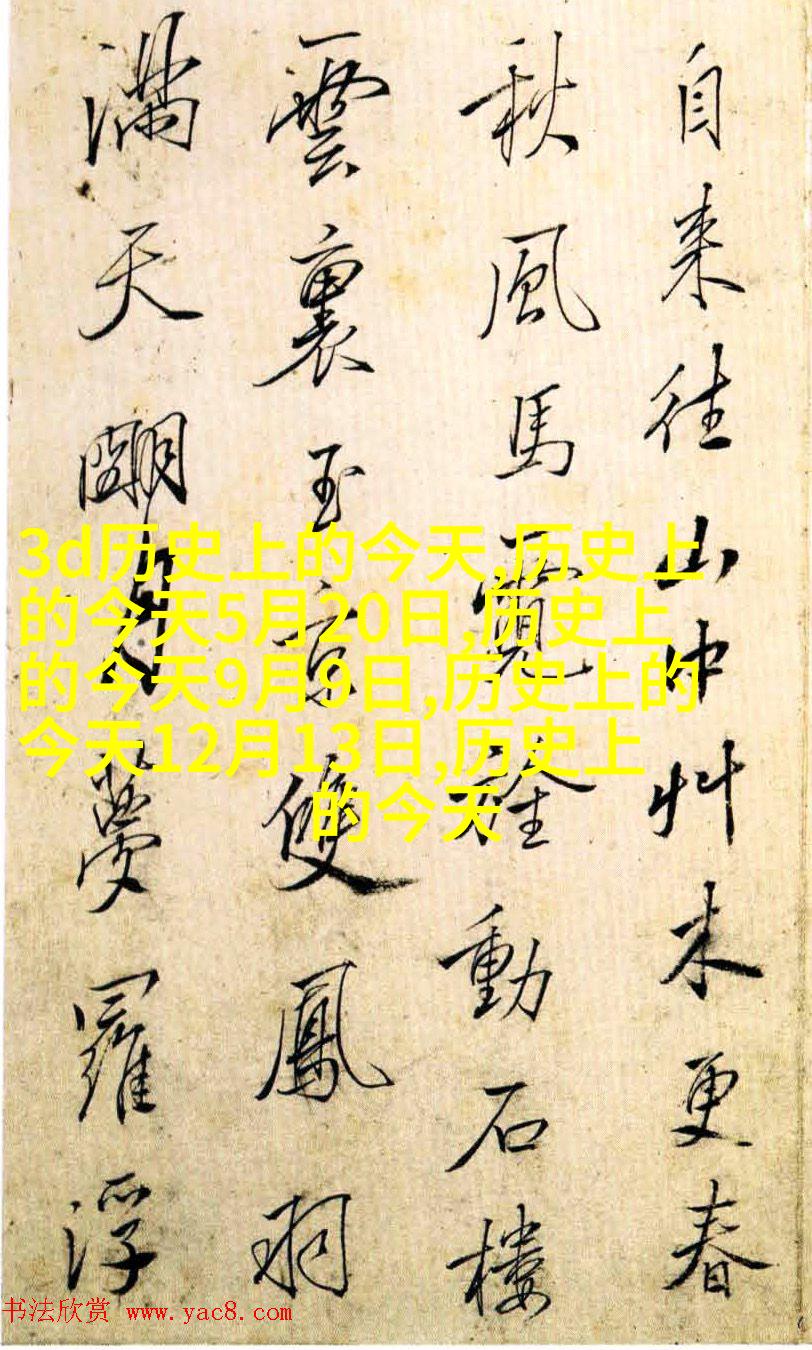 自来往山中艸木更春
秋風馬動石樓
雲裏玉京雙鳳
滿天夢羅浮
3d历史上的今天,历史上
的今天5月20日,历史上
的今天9月9日,历史上的
今天12月13日,历史上
的今天
书法欣赏 www.yac8.com